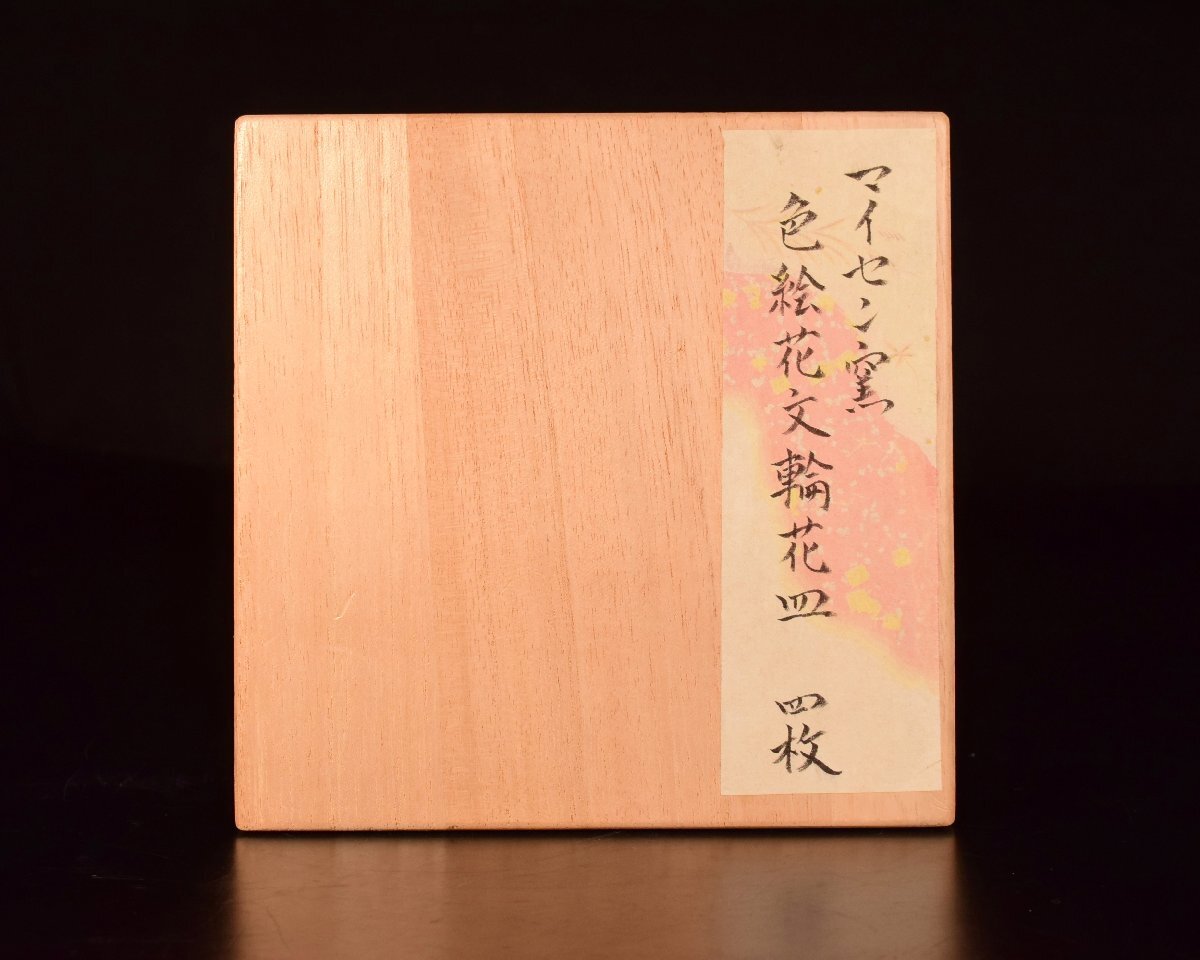 マイセン窯
色絵花文輪花皿 四枚